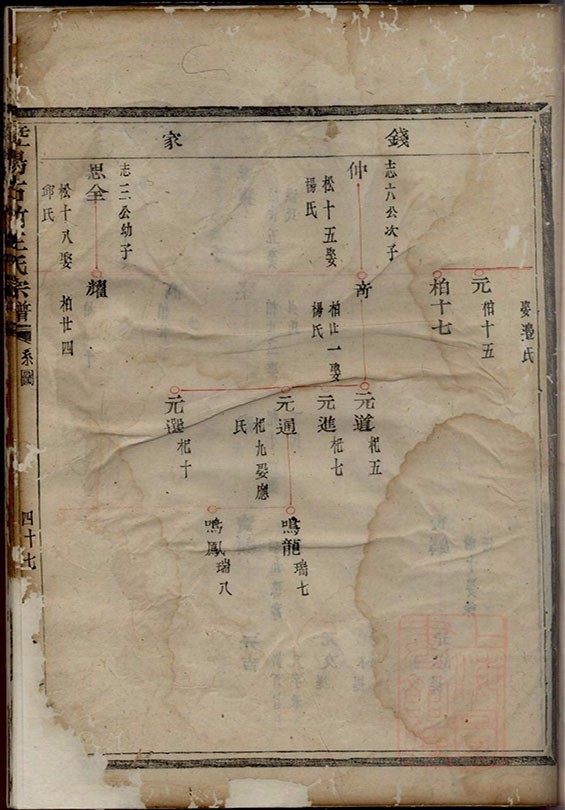 錢 家
娶邊氏
元
柏十五
柏十七
志六公次子
仲
松十五娶
楊氏
奇
柏廿一娶
楊氏
元道
杞五
元進
杞七
元通
杞九娶應
氏
元選
杞十
鳴龍
瑞七
鳴鳳
瑞八
志三公幼子
思全
松十八娶
邱氏
耀
柏廿四
王氏宗譜
系圖
四十七